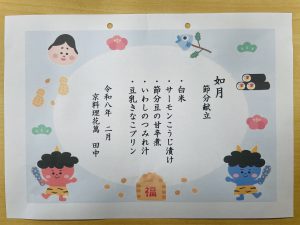 如月
節分献立
・白米
・サーモンこうじ漬け
・節分豆の甘辛煮
・いわしのつみれ汁
・豆乳きなこプリン
令和八年 二月
京料理花萬 田中
福